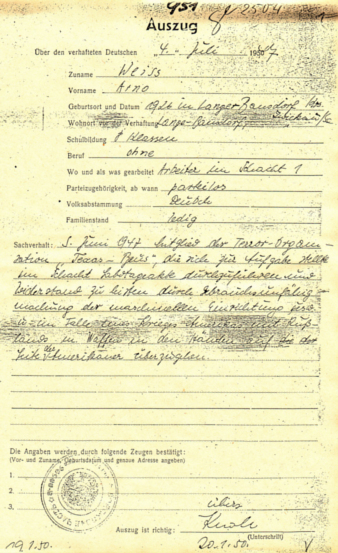 951
Auszug
Über den verhafteten Deutschen 4. Juli 1947
Zuname Weiss
Vorname Arno
Geburtsort und Datum 1926 in Langen-Bernsdorf Krs.
Wohnort vor der Verhaftung Lange-Bernsdorf, Zwickau/Sa
Schulbildung 8 Klassen
Beruf ohne
Wo und als was gearbeitet Arbeiter im Schacht 1
Parteizugehörigkeit, ab wann parteilos
Volksabstammung Deutsch
Familienstand ledig
Sachverhalt: 5. Juni 1947 Mitglied der Terror-Organi-
zation "Texas-Boys", die sich zur Aufgabe stellte
im Schacht Sabotageakte durchzuführen und
Widerstand zu leisten durch Gebrauchsunfähig-
machung der maschinellen Einrichtung
im Falle eines Krieges Amerikas mit Ruß-
lands in Waffen in den Händen auf die der
Seite der Amerikaner überzugehen.
Die Angaben werden durch folgende Zeugen bestätigt:
(Vor- und Zuname, Geburtsdatum und genaue Adresse angeben)
1.
2.
3.
übers.
Auszug ist richtig:
(Unterschrift)
19.1.50. 20.1.50.